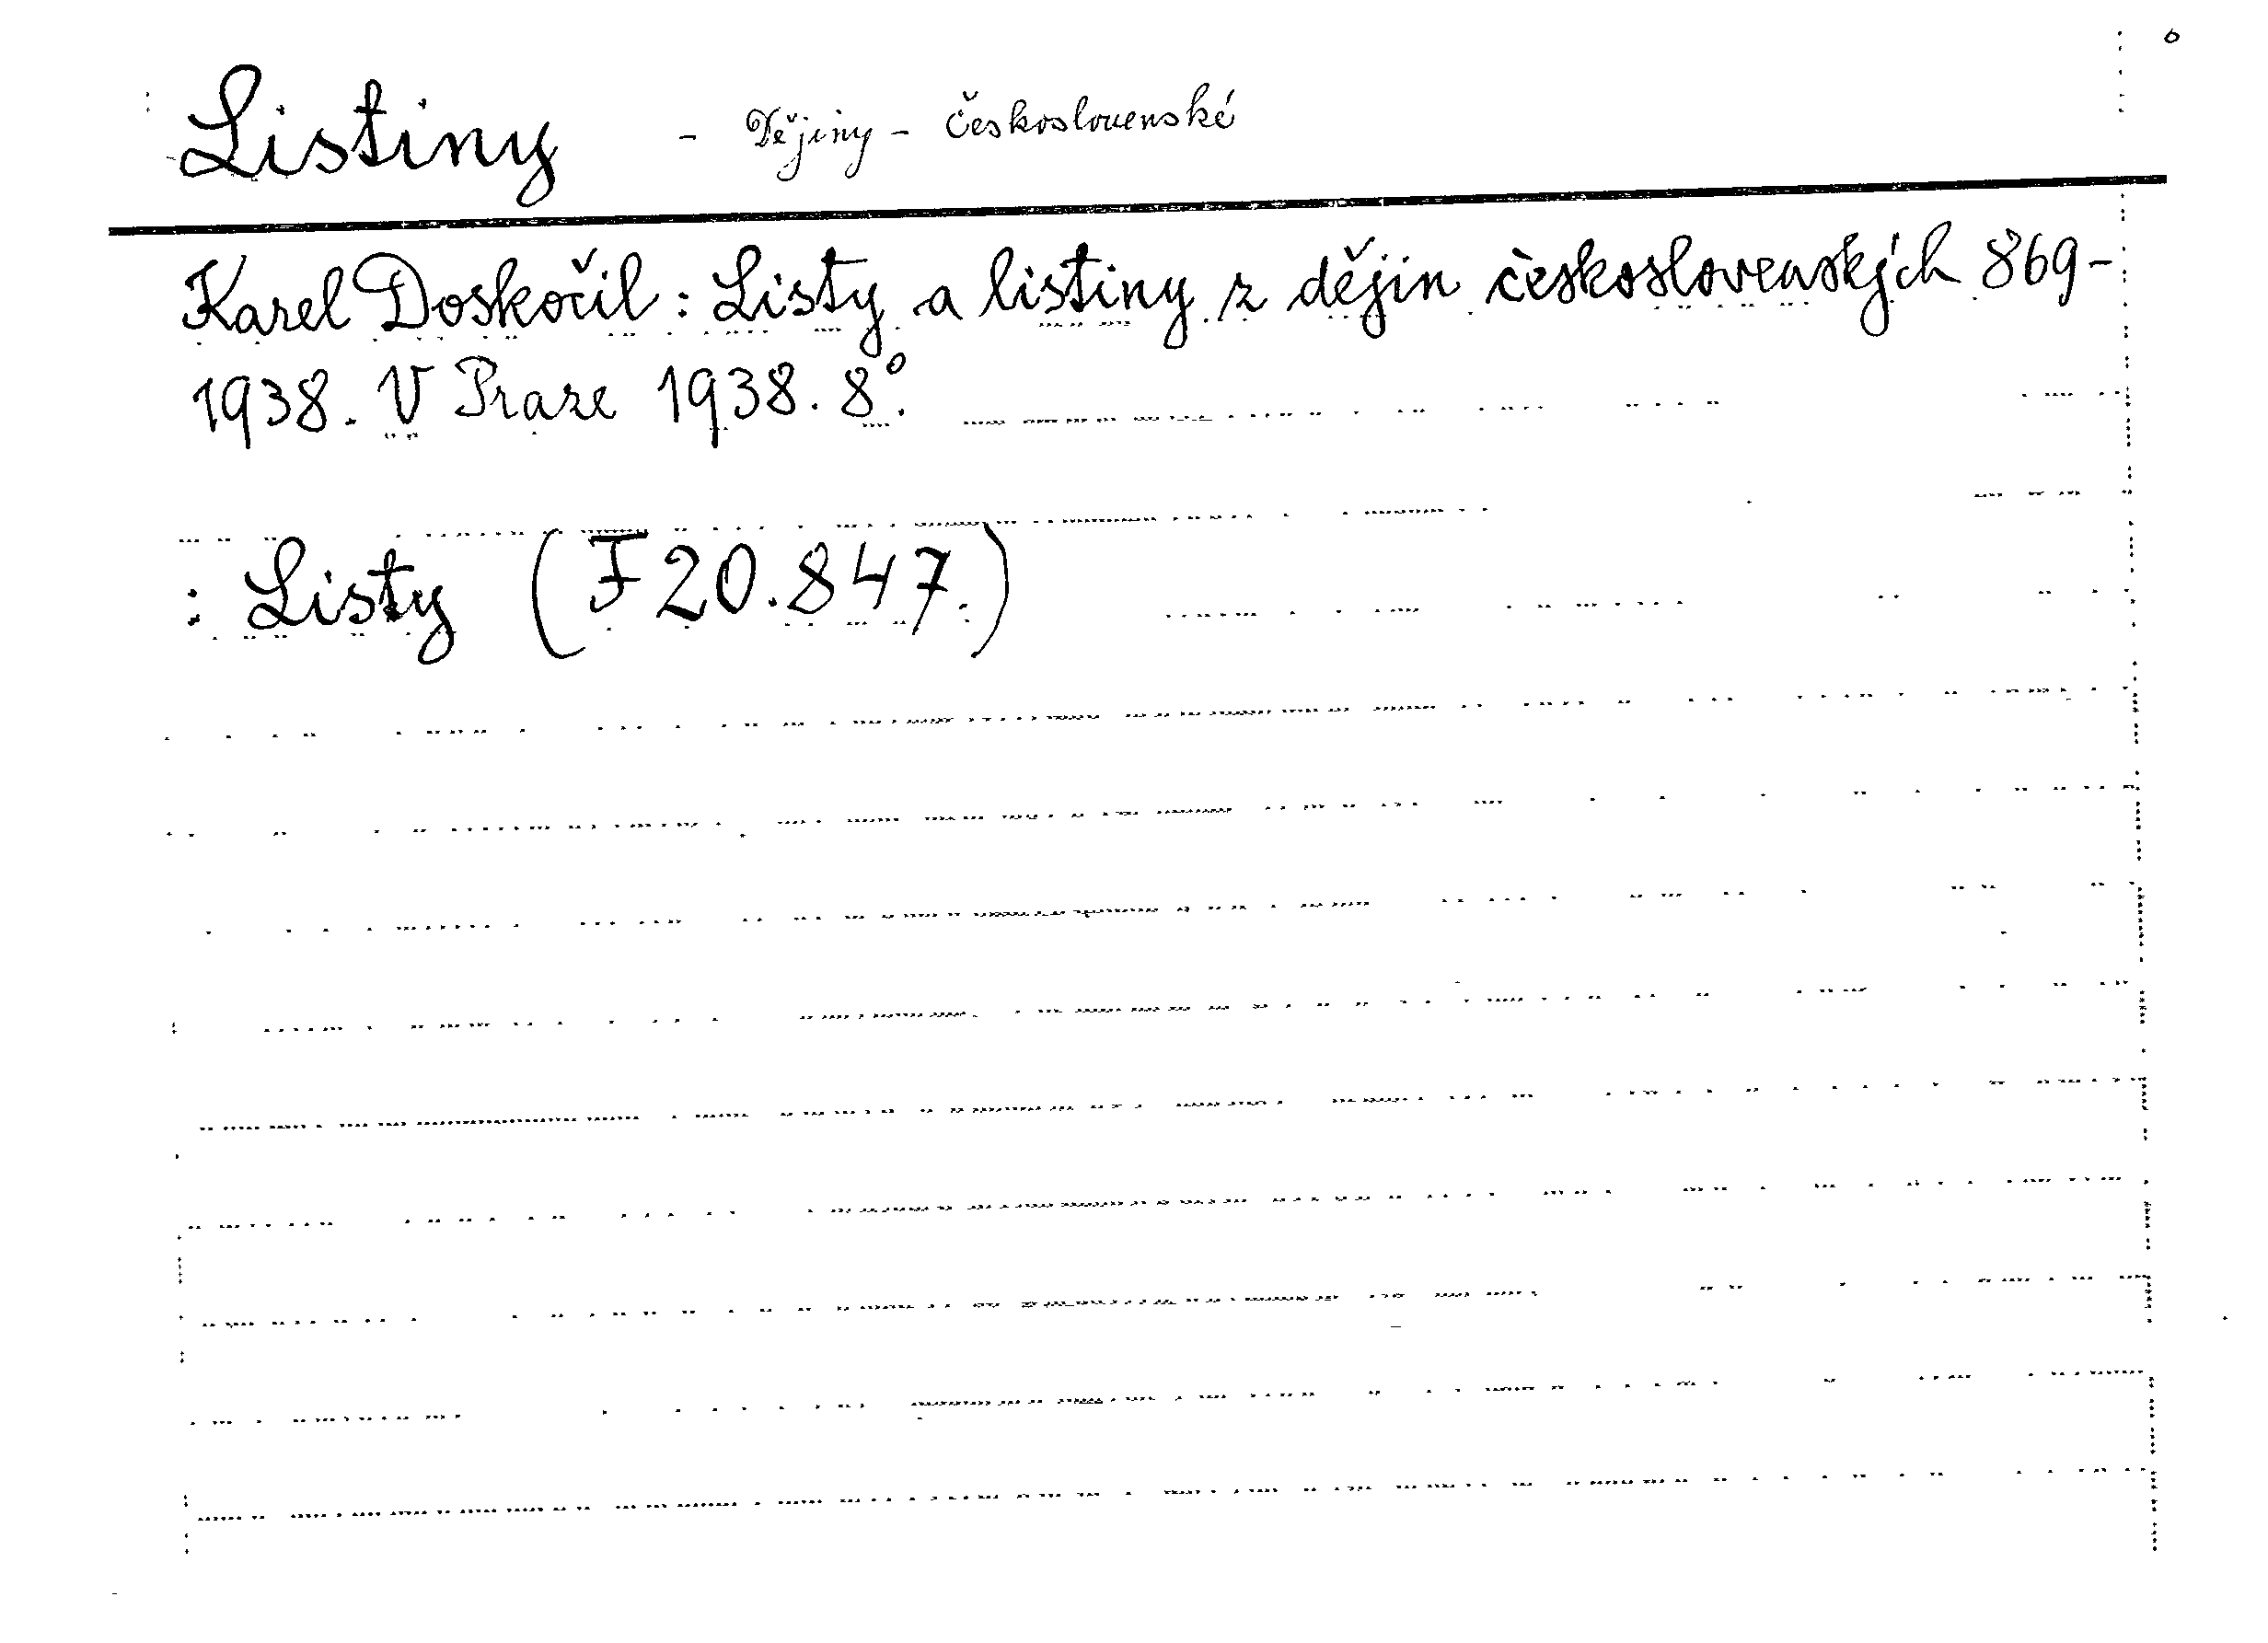 Listiny - Dějiny - Československé
Karel Doskočil: Listy a listiny z dějin československých 869-
1938. V Praze 1938. 8°.
: Listy (F 20.847.)